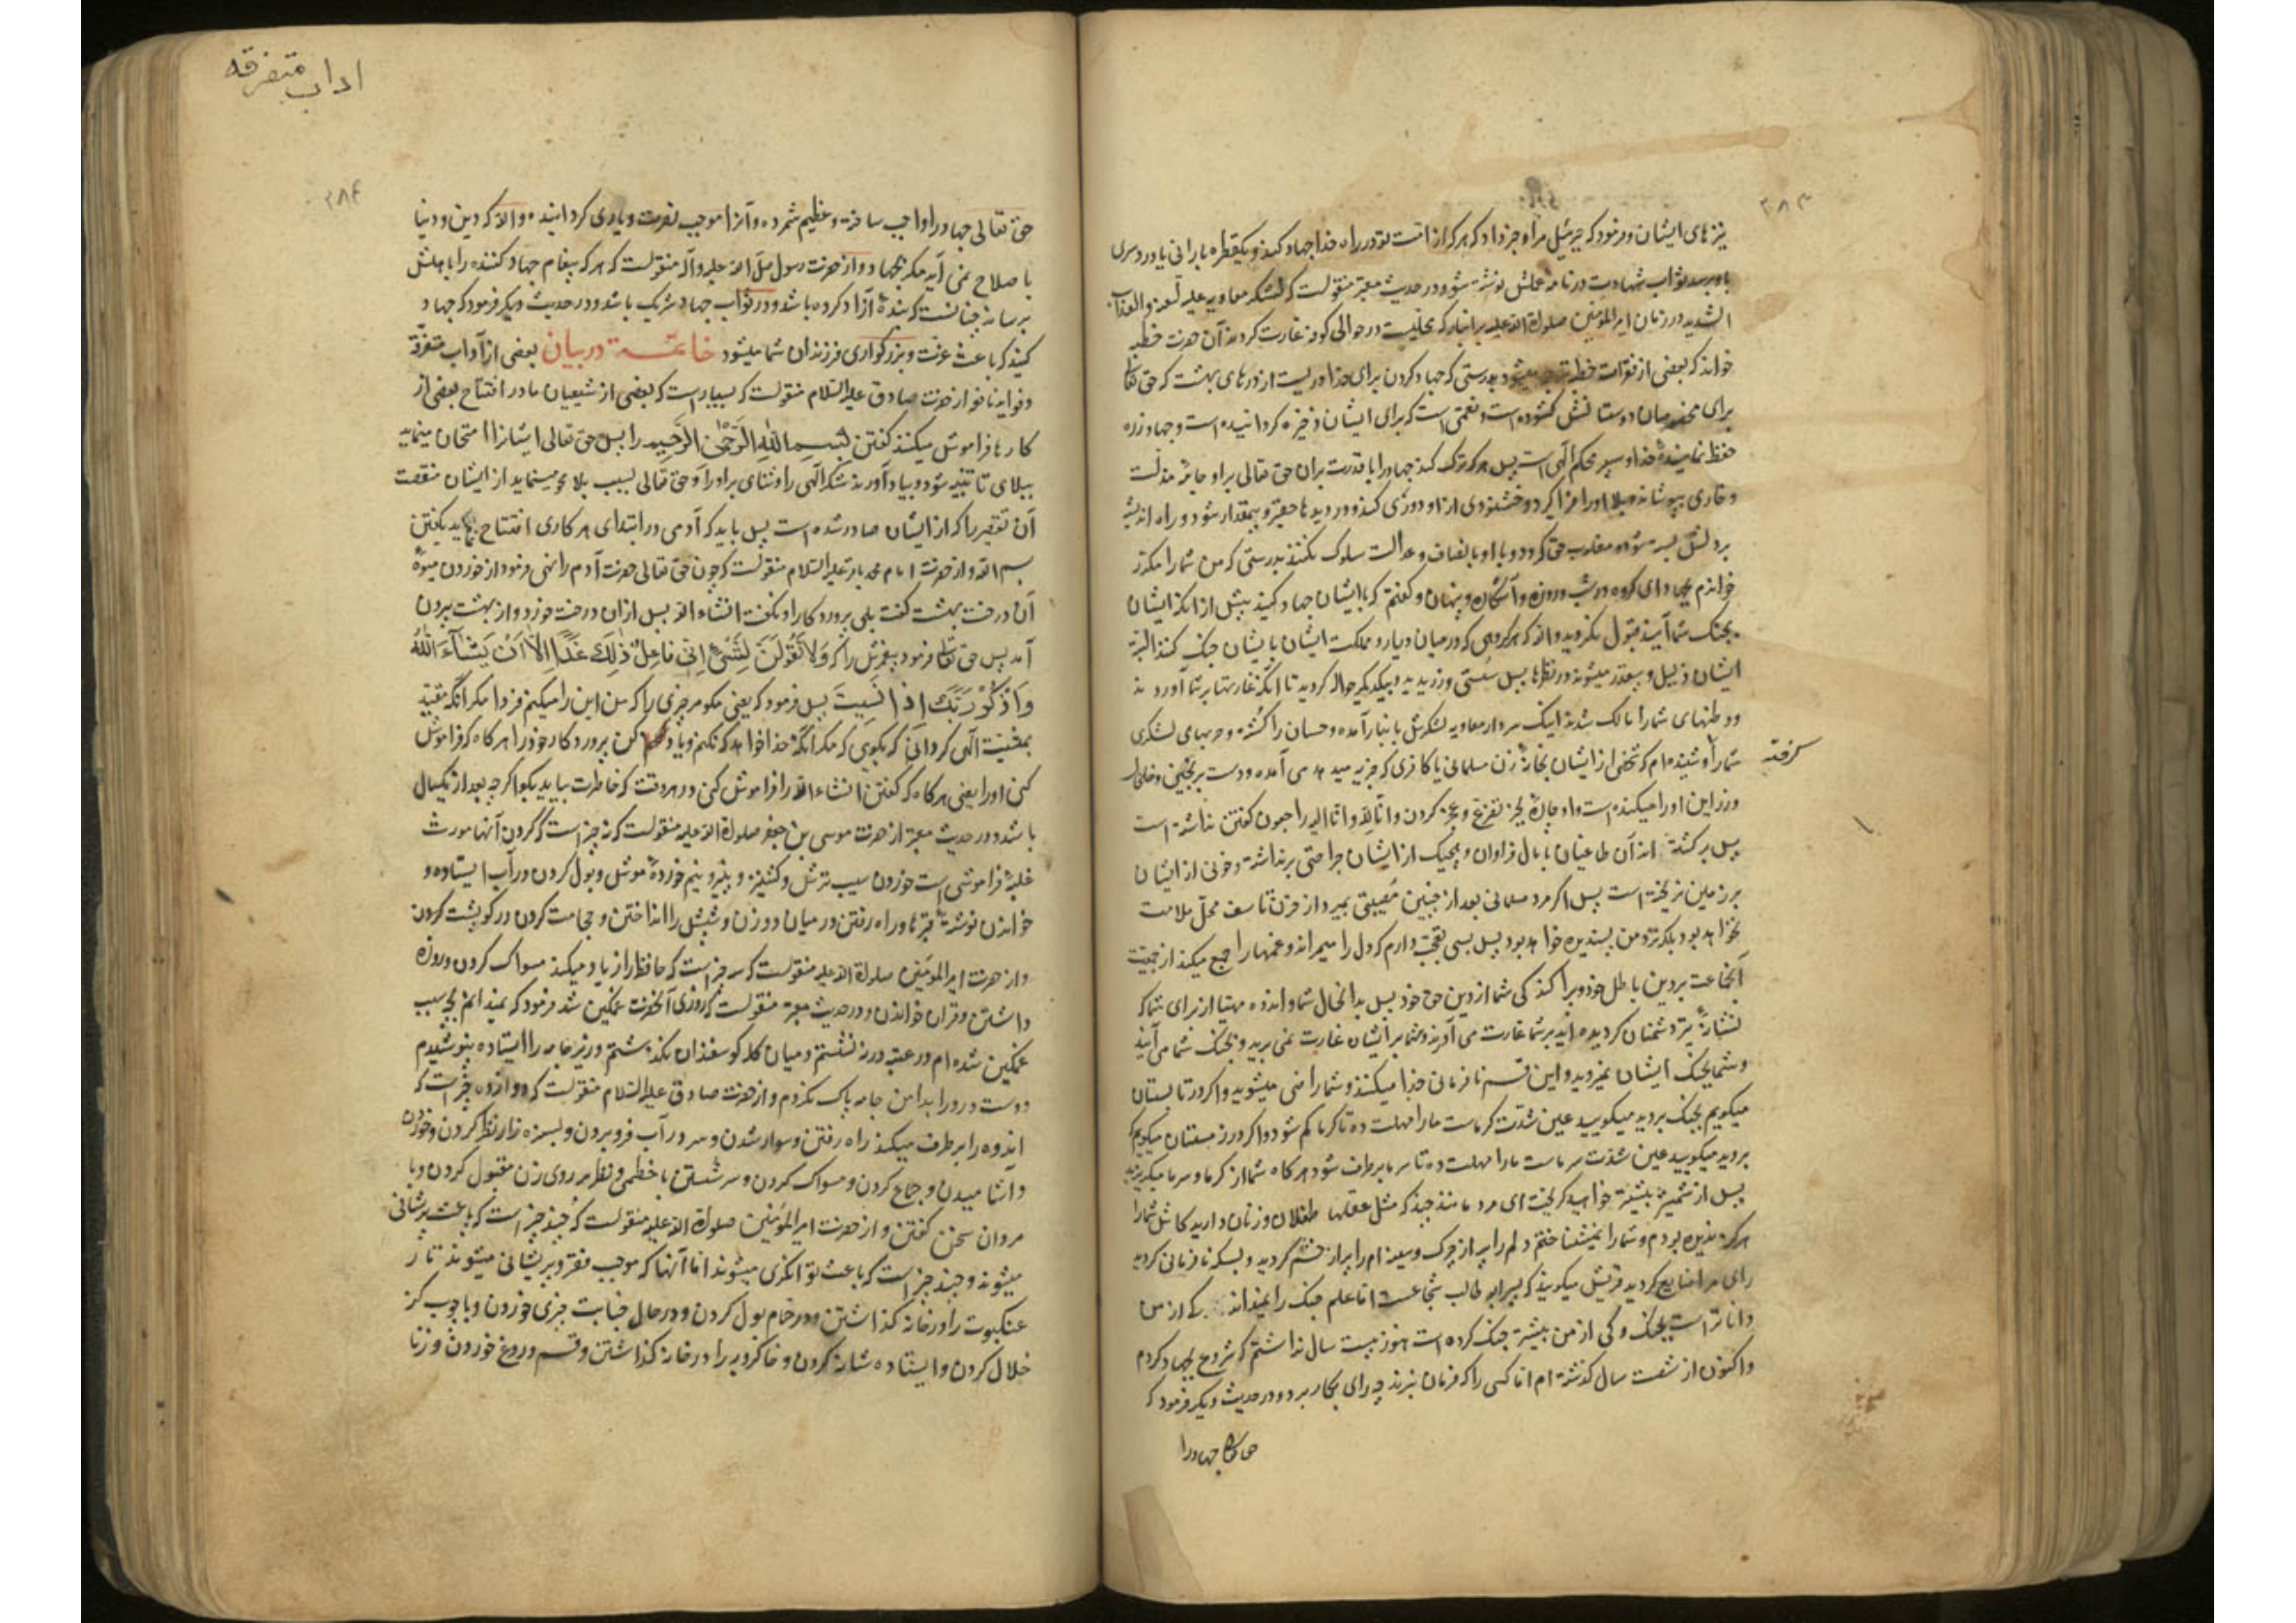 ۳۸۳
نیزهای ایشان و فرمود که جبرئیل مرا خبر داد که هر که از امت تو در راه خدا جهاد کند و یکقطره بارانی یا درد سری
باو برسد ثواب شهادت در نامهٔ عملش نوشته شود و در حدیث معتبر منقولست که لشکر معاویه علیه اللعنه والعذاب
الشدید در زمان امیرالمؤمنین صلوات الله علیه بر انبار که محلیست در حوالی کوفه غارت کردند آن حضرت خطبه
خواند که بعضی از فقرات خطبه ترجمه میشود بدرستی که جهاد کردن برای خدا دریست از درهای بهشت که حق تعالی
برای مخصوصان دوستانش کشوده است و نعمتی است که برای ایشان ذخیره کردانیده است و جهاد زره
حفظ نمایندهٔ خدا و سپر محکم الهی است پس هر که ترک کند جهاد را با قدرت بران حق تعالی بر او جامهٔ مذلت
و خاری بپوشاند و بلا او را فرا گیرد و خشنودی از او دوری کند و در دیدها حقیر و بیمقدار شود و راه اندیشه
بر دلش بسته شود و مغلوب حق گردد و با او بانصاف و عدالت سلوک نکنند بدرستی که من شما را مکرر
خواندم بجهاد ای گروه در شب و روز و آشکاره و پنهان و گفتم که با ایشان جهاد کنید پیش از انکه ایشان
بجنک شما آیند قبول نکردید والله که هر کروهی که در میان دیار و مملکت ایشان با یشان جنک کنند البته
ایشان ذلیل و بیقدر میشوند در نظرها پس سستی ورزیدید و بیکدیکر حواله کردید تا انکه غارتها بر شما آوردند
و وطنهای شما را مالک شدند اینک سردار معاویه لشکرش بانبار آمده و حسان را کشته و حربهای لشکری
شما را شنیده ام که شخصی از ایشان بخانهٔ زن مسلمانی یا کافری که جزیه میدهد می آمده و دست برنجین و خلخال
گرفته
وزر این او را میکنده است و او چارهٔ بجز تضرع و عجز کردن و انا لله و انا الیه راجعون گفتن نداشته است
پس برکشته اند آن طاعیان با مال فراوان و هیچیک از ایشان جراحتی برنداشته و خونی از ایشان
بر زمین نریخته است پس اگر مرد مسلمانی بعد از چنین مصیبتی بمیرد از حزن و تاسف محل ملامت
نخواهد بود بلکه نزد من پسندیده خواهد بود پس بسی تعجب دارم که دل را میمیراند و غمها را جمع میکند از جمعیت
آنجماعت بر دین باطل خود و پراکندکی شما از دین حق خود پس بدا بحال شما و اندوه مهیا از برای شما که
نشانهٔ تیر دشمنان کردیده اید بر شما غارت می آورند و شما بر ایشان غارت نمی برید و بجنک شما می آیند
و شما بجنک ایشان نمیروید و این قسم نافرمانی خدا میکنند و شما راضی میشوید و اگر در تابستان
میگویم بجنک بروید میگویید عین شدت گرماست ما را مهلت ده تا گرما کم شود و اگر در زمستان میگویم که
بروید میگویید عین شدت سرماست ما را مهلت ده تا سرما برطرف شود هرگاه شما از گرما و سرما میگریزید
پس از شمشیر بیشتر خواهید گریخت ای مرد مانند چند که مثل عقلها طفلان و زنان دارید کاش شما را
هرگز ندیده بودم و شما را نمیشناختم دلم را پر از چرک و سینه ام را پر از خشم کردید و بسکه نافرمانی کردید
رای مرا ضایع کردید قریش میگویند که پسر ابوطالب شجاعست اما علم جنک را نمیداند که از من
داناتر است بجنک و کی از من بیشتر جنک کرده است هنوز بیست سال نداشتم که شروع بجهاد کردم
و اکنون از شصت سال گذشته ام اما کسی را که فرمان نبرند چه رای بکار برد و در حدیث دیگر فرمود که
حق تعالی جهاد را
اداب متفرقه
۳۸۴
حق تعالی جهاد را واجب ساخته و عظیم شمرده و آنرا موجب نصرت و یاری کردانیده والله که دین و دنیا
باصلاح نمی آید مگر بجهاد و از حضرت رسول صلی الله علیه و اله منقولست که هر که پیغام جهاد کننده را باهلش
برساند چنانست که بندهٔ آزاد کرده باشد و در ثواب جهاد شریک باشد و در حدیث دیگر فرمود که جهاد
کنید که باعث عزت و بزرگواری فرزندان شما میشود خاتمه در بیان بعضی از آداب متفرقه
و فواید نافع از حضرت صادق علیه السلام منقولست که بسیار است که بعضی از شیعیان ما در افتتاح بعضی از
کارها فراموش میکنند گفتن بسم الله الرحمن الرحیم را پس حق تعالی ایشانرا امتحان مینماید
ببلای تا تنبیه شود و بیاد آورند شکر الهی را و ثنای بر او را و حق تعالی بسبب بلا محو مینماید از ایشان منقصت
آن تقصیر را که از ایشان صادر شده است پس باید که آدمی در ابتدای هر کاری افتتاح نماید بگفتن
بسم الله و از حضرت امام محمد باقر علیه السلام منقولست که چون حق تعالی حضرت آدم را نهی فرمود از خوردن میوهٔ
آن درخت بهشت گفت بلی پروردگارا و نگفت انشاء الله پس ازان درخت خورد و از بهشت بیرون
آمد پس حق تعالی فرمود پیغمبرش را که وَلَا تَقُولَنَّ لِشَیْءٍ اِنّی فَاعِلٌ ذٰلِکَ غَدًا اِلَّا اَنْ یَشَآءَ اللّٰهُ
وَاذْکُرْ رَبَّکَ اِذَا نَسِیتَ پس فرمود که یعنی مگو هر چیزی را که من این را میکنم فردا مگر آنکه مقید
بمشیت الهی گردانی که بگویی که مگر آنکه خدا خواهد که نکنم و یاد کن پروردگار خود را هرگاه که فراموش
کنی او را یعنی هرگاه که گفتن انشاء الله را فراموش کنی در هر وقت که خاطرت بیاید بگو اگر چه بعد از یکسال
باشد و در حدیث معتبر از حضرت موسی بن جعفر صلوات الله علیه منقولست که نه چیز است که کردن آنها مورث
غلبهٔ فراموشی است خوردن سیب ترش و گشنیز و پنیر و نیم خوردهٔ موش و بول کردن در آب ایستاده و
خواندن نوشتهٔ قبرها و راه رفتن در میان دو زن و شپش را انداختن و حجامت کردن در گو پشت گردن
و از حضرت امیرالمؤمنین صلوات الله علیه منقولست که سه چیز است که حافظه را زیاد میکند مسواک کردن و روزه
داشتن و قران خواندن و در حدیث معتبر منقولست که روزی آنحضرت غمگین شد فرمود که نمیدانم بچه سبب
غمگین شده ام در عتبه در ننشستم و میان گله گوسفندان نگذشتم و زیر جامه را ایستاده نپوشیدم
و دست و رو را بدامن جامه پاک نکردم و از حضرت صادق علیه السلام منقولست که دوازده چیز است که
اندوه را برطرف میکند راه رفتن و سوار شدن و سر در آب فرو بردن و بسبزه زار نظر کردن و خوردن
و اشامیدن و جماع کردن و مسواک کردن و سر شستن با خطمی و نظر بر روی زن مقبول کردن و با
مردان سخن گفتن و از حضرت امیرالمؤمنین صلوات الله علیه منقولست که چند چیز است که باعث پریشانی
میشوند و چند چیز است که باعث توانگری میشوند اما آنها که موجب فقر و پریشانی میشوند تار
عنکبوت را در خانه گذاشتن و در حمام بول کردن و در حال جنابت چیزی خوردن و با چوب گز
خلال کردن و ایستاده شانه کردن و خاکروبه را در خانه گذاشتن و قسم دروغ خوردن و زنا